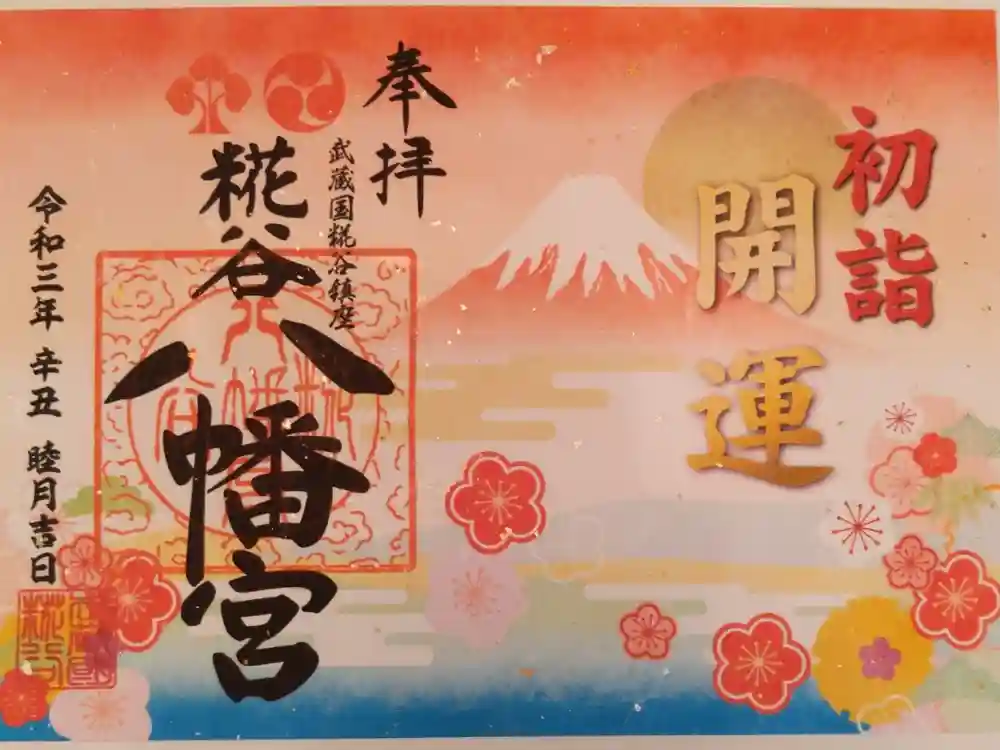 初詣
開運
奉拝
武蔵国糀谷鎮座
糀谷八幡宮
令和三年 辛丑 睦月吉日